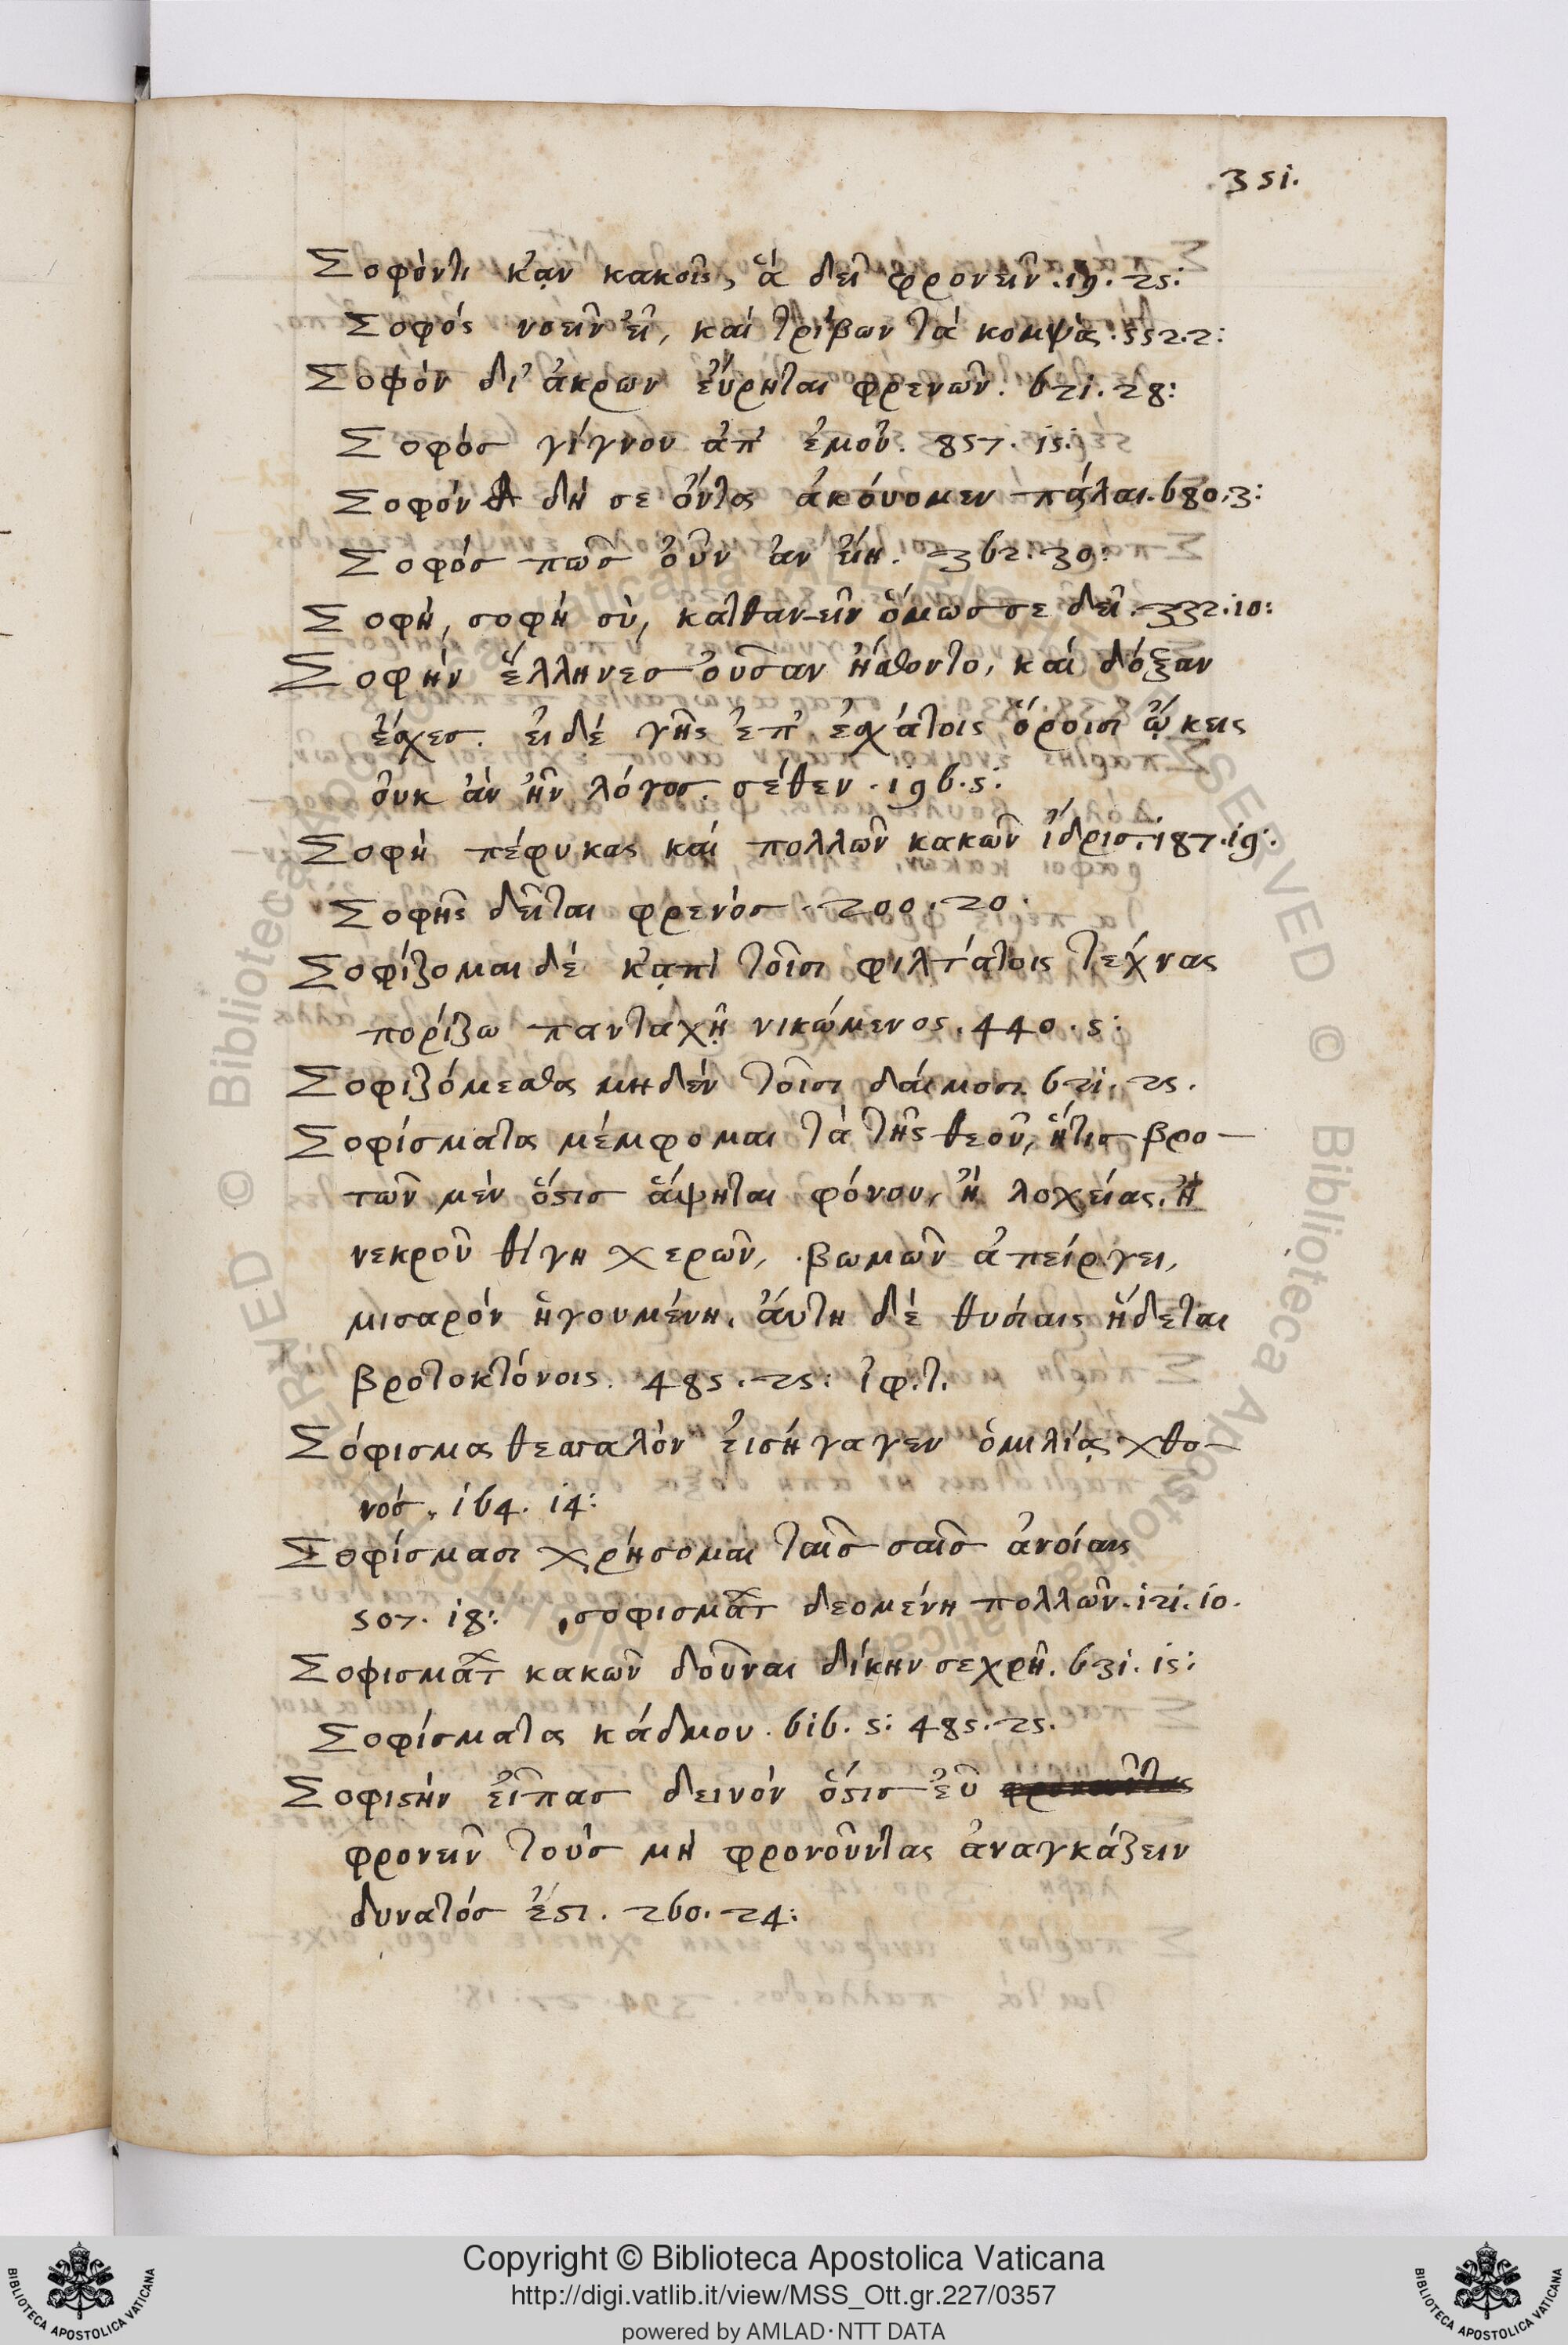 351.
Σοφόν τι κᾀν κακοῖς, ἃ δεῖ φρονεῖν. 19. 25:
Σοφὸς νοεῖν εἶ, καὶ τρίβων τὰ κομψά. 552. 2:
Σοφὸν δι' ἄκρων εὕρηται φρενῶν. 621. 28:
Σοφὸς γίγνου ἀπ' ἐμοῦ. 857. 15:
Σοφὸν δή σε ὄντα ἀκούομεν πάλαι. 680. 3:
Σοφὸς πῶς οὖν ἂν εἴη. 362. 39:
Σοφὴ, σοφὴ σὺ, κατθανεῖν ὅμως σε δεῖ. 332. 10:
Σοφὴν ἕλληνες οὖσαν ἤσθοντο, καὶ δόξαν
ἔσχες. εἰ δὲ γῆς ἐπ' ἐσχάτοις ὅροισι ᾤκεις
οὐκ ἂν ἦν λόγος σέθεν. 196. 5:
Σοφὴ πέφυκας καὶ πολλῶν κακῶν ἴδρις. 187. 19:
Σοφῆς δεῖται φρενός. 200. 20.
Σοφίζομαι δὲ κᾀπὶ τοῖσι φιλτάτοις τέχνας
πορίζω πανταχῇ νικώμενος. 440. 5:
Σοφιζόμεσθα μηδὲν τοῖσι δαίμοσι. 621. 25.
Σοφίσματα μέμφομαι τὰ τῆς θεοῦ, ἥτις βρο-
τῶν μὲν ὅστις ἅψηται φόνου, ἢ λοχείας, ἢ
νεκροῦ θίγη χερῶν, βωμῶν ἀπείργει,
μισαρὸν ἡγουμένη. αὐτὴ δὲ θυσίαις ἥδεται
βροτοκτόνοις. 485. 25: ἰφ. τ.
Σόφισμα θεσσαλὸν εἰσήγαγεν ὁμιλίᾳ χθο-
νός. 164. 14:
Σοφίσμασι χρήσομαι ταῖς σαῖς ἀνοίαις
507. 18: σοφισμάτ δεομένη πολλῶν. 121. 10.
Σοφισμάτ κακῶν δοῦναι δίκην σε χρή. 631. 15:
Σοφίσματα κάδμου. 616. 5: 485. 25.
Σοφιστὴν εἶπας δεινὸν ὅστις εὖ φρονοῦντας
φρονεῖν τοὺς μὴ φρονοῦντας ἀναγκάζειν
δυνατός ἐστι. 260. 24:
Copyright © Biblioteca Apostolica Vaticana
http://digi.vatlib.it/view/MSS_Ott.gr.227/0357
powered by AMLAD·NTT DATA